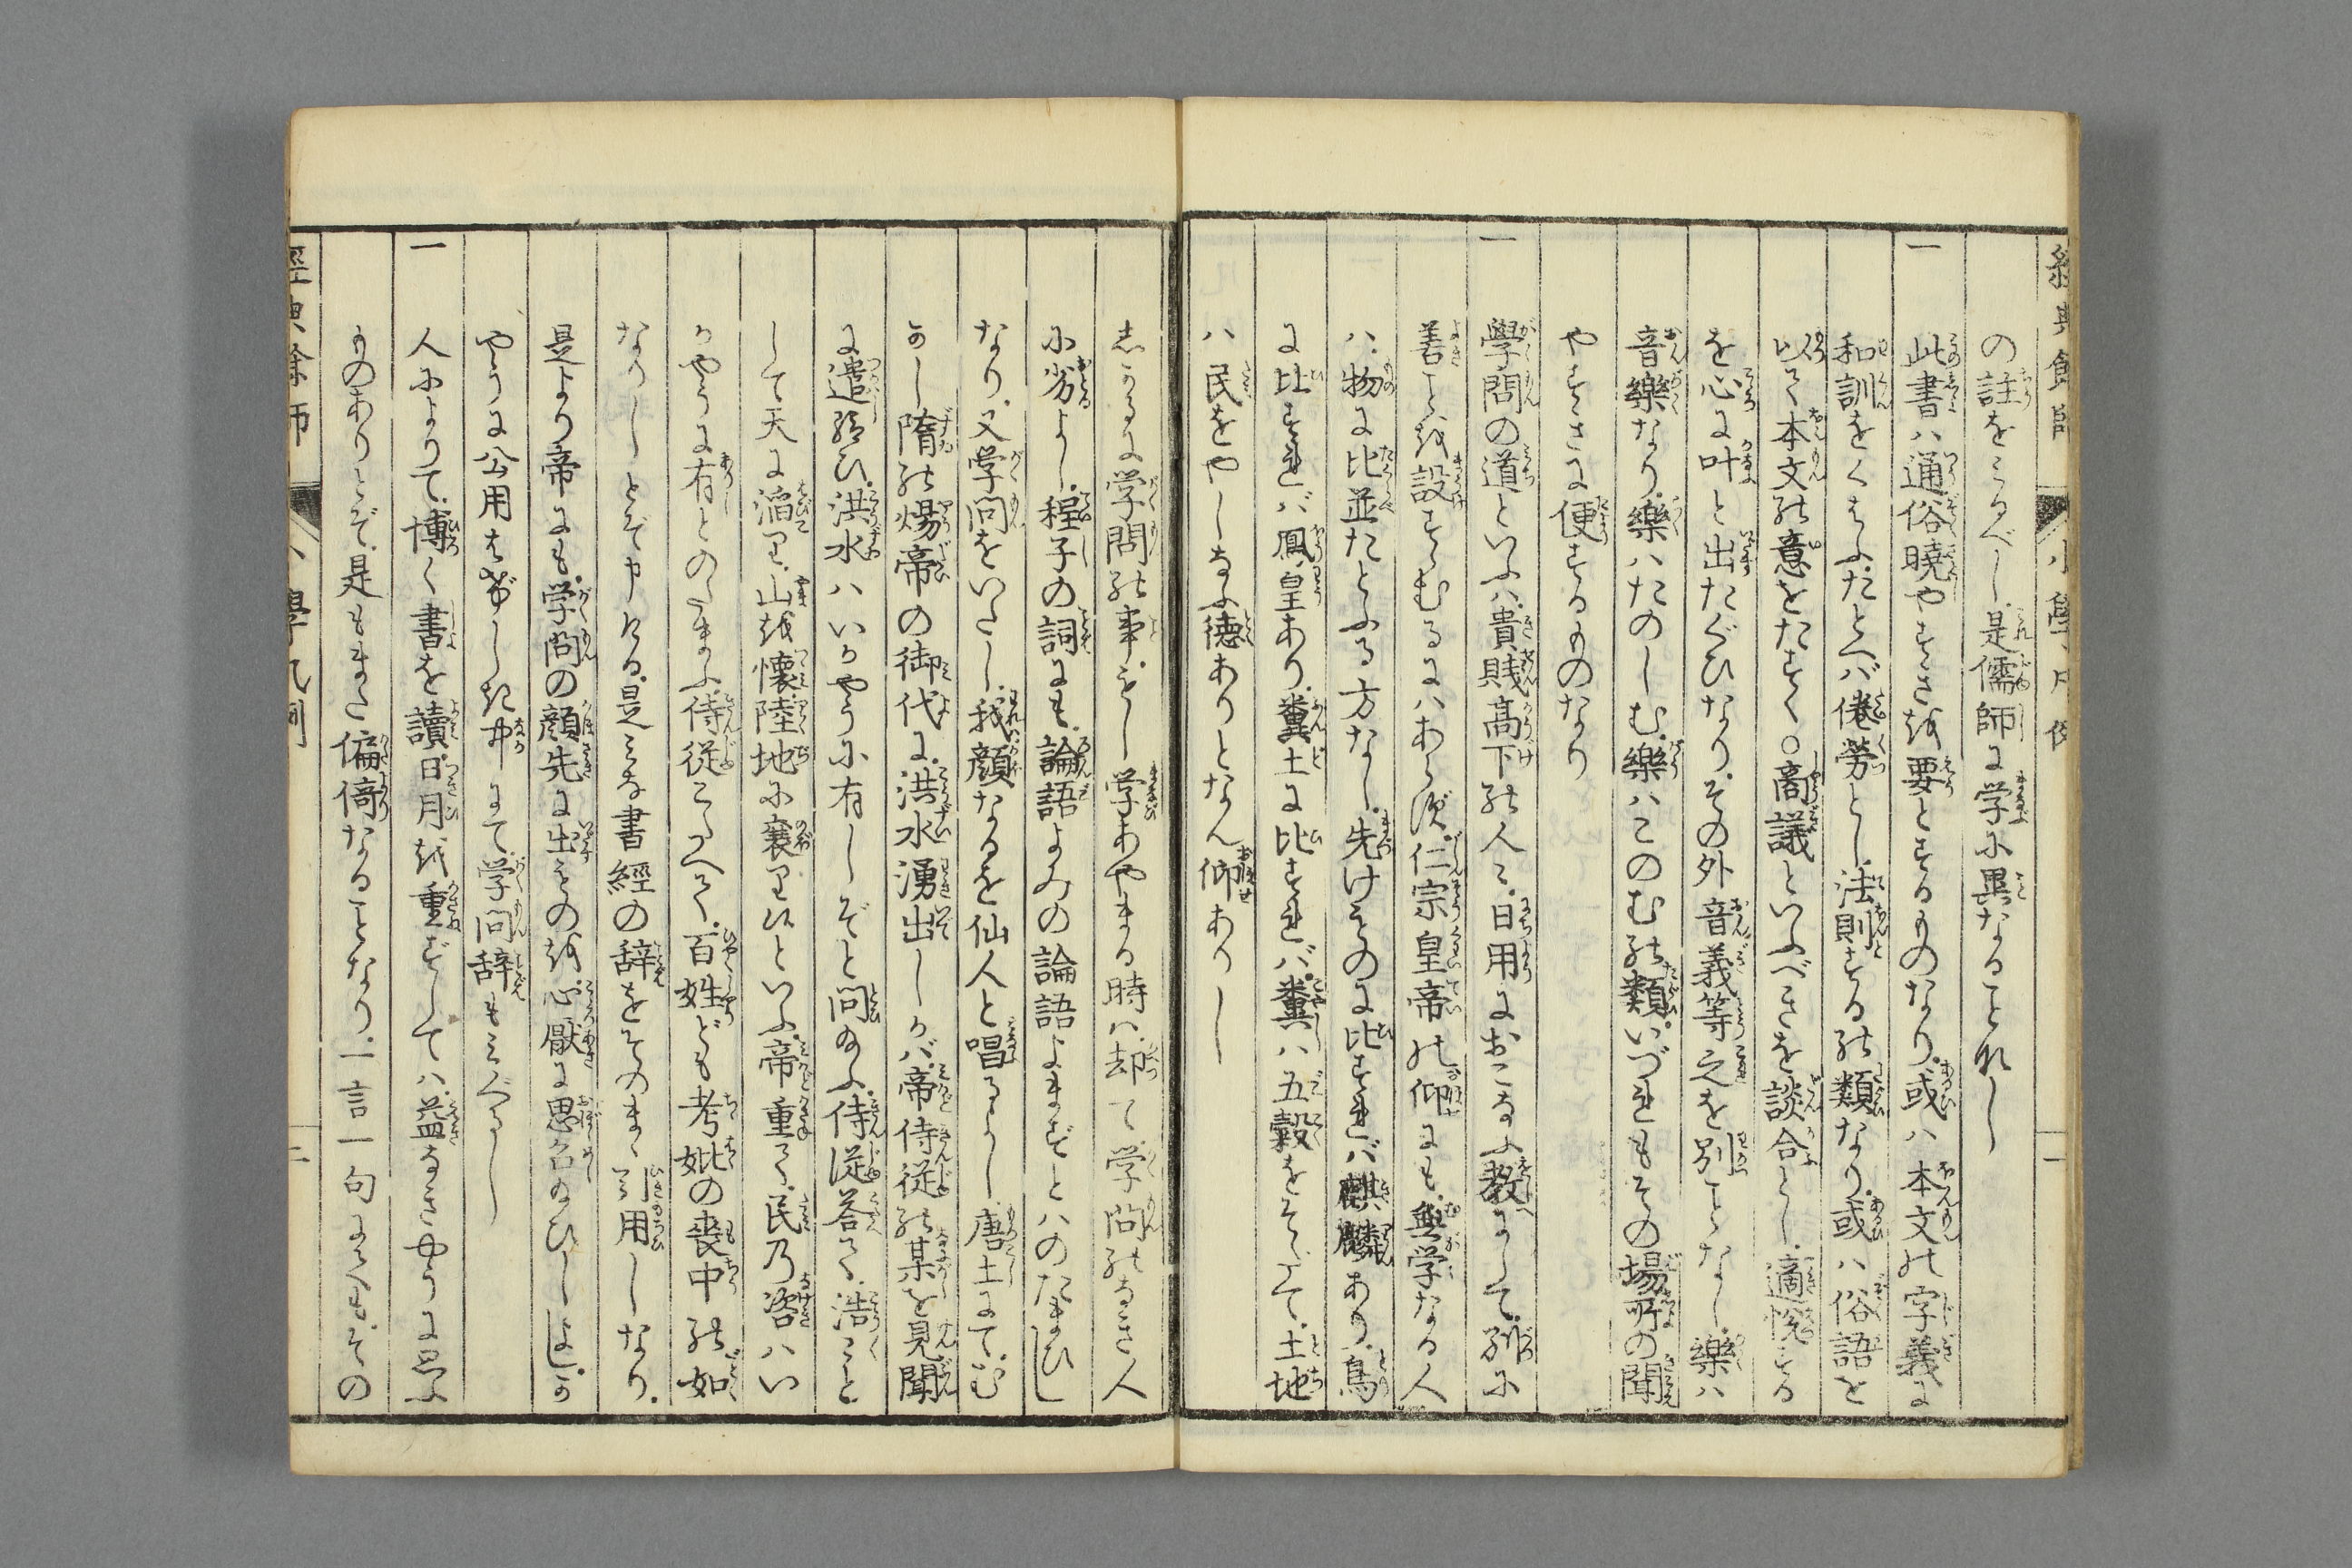 の註をみるべし是儒師に学に異なることなし
一 此書ハ通俗暁やすきを要とするものなり或ハ本文の字義に
和訓をくはふたとへバ倦労とし法則するの類なり或ハ俗語を
以て本文の意をたすく○商議といふべきを談合とし適悦する
を心に叶と出たぐひなりその外音義等之を別ことなし樂ハ
音樂なり樂ハたのしむ樂ハこのむの類いづれもその場所の聞
やすきに便するものなり
一 學問の道といふハ貴賎高下の人々日用におこなふ教にして別に
善ことを設すゝむるにハあらず仁宗皇帝の仰にも無学なる人
ハ物に比並たとふる方なし先けものに比すれバ麒麟あり鳥
に比すれバ鳳皇あり糞土に比すれバ糞ハ五穀をそだて土地
ハ民をやしなふ徳ありとなん仰ありし
しかるに学問の事もし学あやまる時ハ却て学問のなき人
に劣よし程子の詞にも論語よみの論語よまずとハのたまひし
なり又学問をいたし我顔なるを仙人と唱るよし唐土にてむ
かし隋の煬帝の御代に洪水湧出しかバ帝侍従の某を見聞
に遣給ひ洪水ハいかやうに有しぞと問給ふ侍従答て浩々と
して天に滔り山を懐陸地に襄りたといふ帝重て民乃咨ハい
かやうに有とのたまふ侍従こたへて百姓ども考妣の喪中の如
なりしとぞ申ける是みな書經の辞をそのまゝ引用しなり
是より帝にも学問の顔先に出ものを心厭に思召給ひしよしか
やうに公用はげしき中にて学問辞もミぐるし
一 人によりて博く書を讀日月を重ずしてハ益なきやうに思ふ
ものありとぞ是もまた偏倚なることなり一言一句にてもその